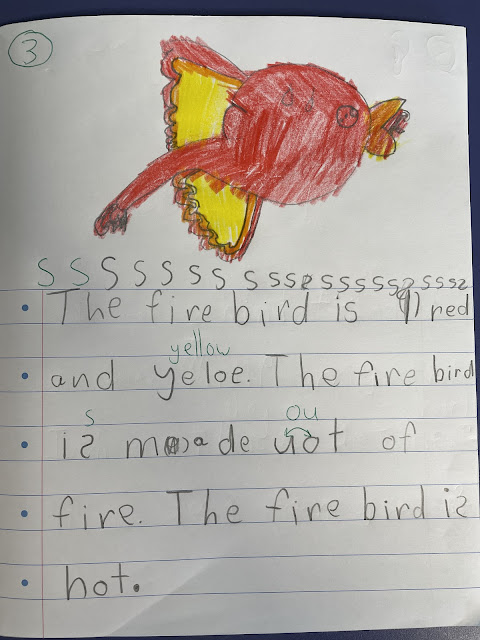 3
S S S S S S S S S S S S S S S S S S S S S
The fire bird is red
yellow
and yeloe. The fire bird
s ou
is made uot of
fire. The fire bird is
hot.